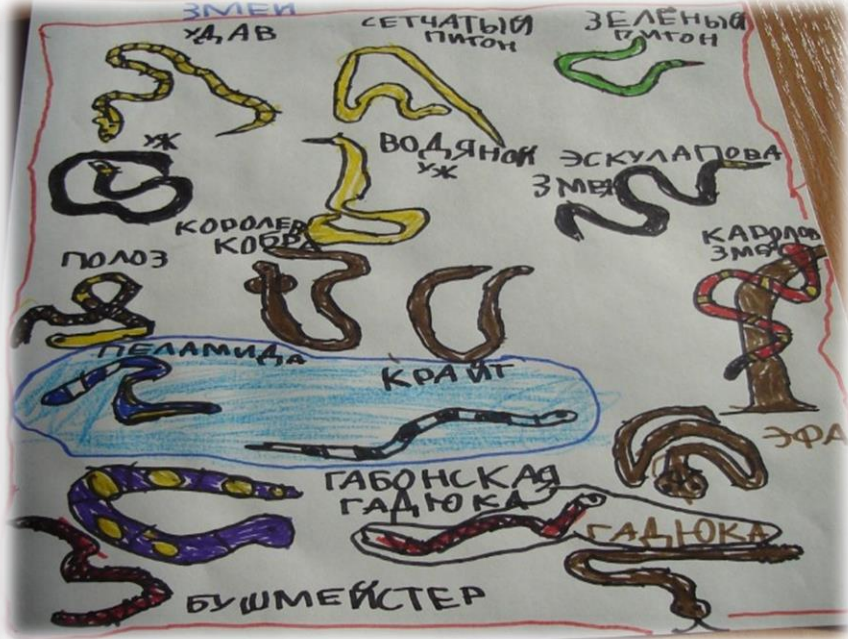 ЗМЕИ
УДАВ
СЕТЧАТЫЙ
ПИТОН
ЗЕЛЁНЫЙ
ПИТОН
УЖ
ВОДЯНОЙ
УЖ
ЭСКУЛАПОВА
ЗМЕЯ
ПОЛОЗ
КОРОЛЕВ
КОБРА
КАРОЛОВ
ЗМЕЯ
ПЕЛАМИДА
КРАЙТ
ЭФА
ГАБОНСКАЯ
ГАДЮКА
ГАДЮКА
БУШМЕЙСТЕР